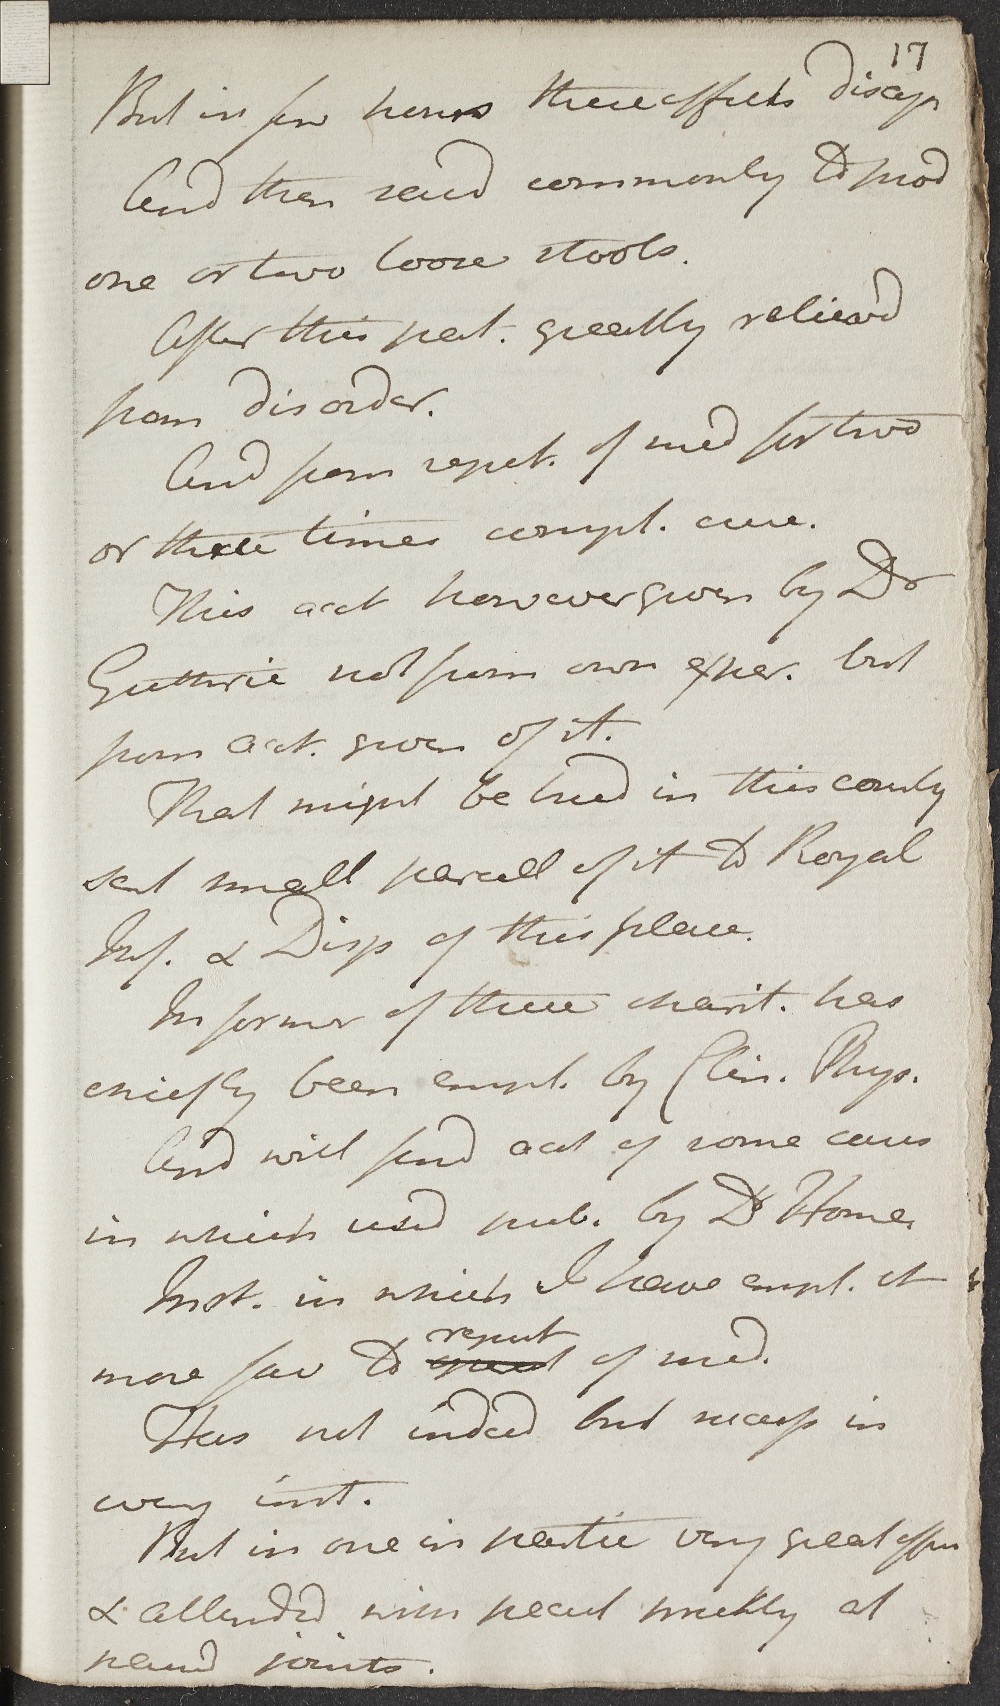 17
But in few hours these effects disap
And then said commonly to prod
one or two loose stools.
After this pat. greatly relievd
from disorder.
And from repet. of med for two
or three times compl. cure.
This acct however given by Dr
Guthrie not from own exper. but
from acct. given of it.
That might be tried in this county
sent small parcell of it to Royal
Inf. & Disp of this place.
In former of these charit. has
chiefly been empl. by Clin. Phys.
And will find acct of some cases
in which used pub. by Dr Home.
Inst. in which I have empl. it
more fav to reput of med.
Has not indeed but succesf in
every inst.
But in one in partic very great effects
& attended with pecul prickly at
paind joints.